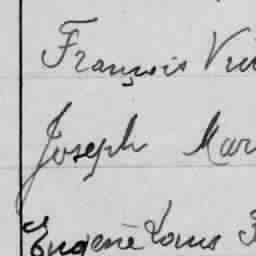 François
Joseph Mar
Eugène Louis